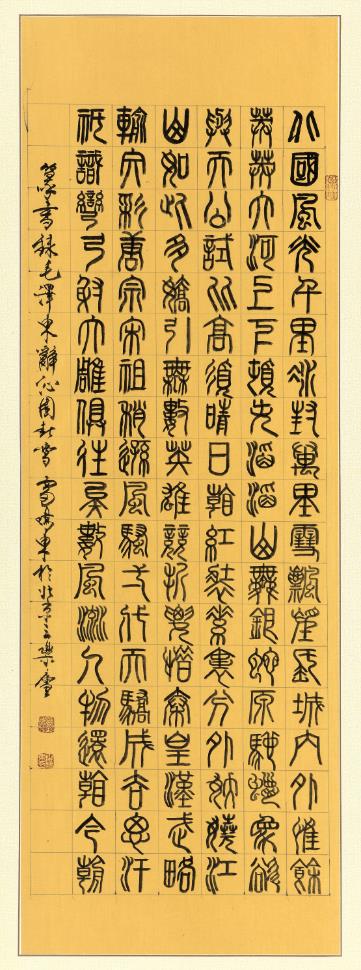 北國風光千里冰封萬里雪飄望長城內外惟餘
莽莽大河上下頓失滔滔山舞銀蛇原馳蠟象欲
與天公試比高須晴日看紅裝素裹分外妖嬈江
山如此多嬌引無數英雄競折腰惜秦皇漢武略
輸文彩唐宗宋祖稍遜風騷一代天驕成吉思汗
祇識彎弓射大雕俱往矣數風流人物還看今朝
篆書錄毛澤東辭沁園春雪